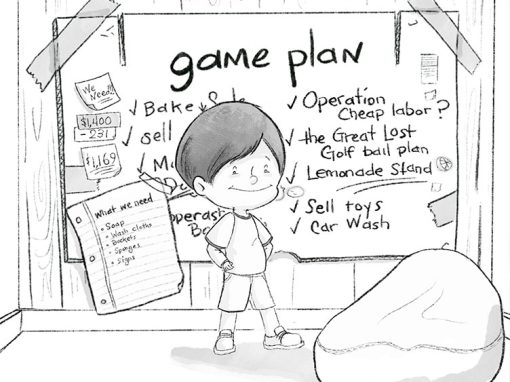 game plan
We Need!!
$1,400
- 231
$1,169
✓ Bake Sale
✓ sell
✓
✓ Operation
Cheap labor?
✓ the Great Lost
Golf ball plan
✓ Lemonade Stand
✓ Sell toys
✓ Car Wash
What we need
• Soap
• Wash cloths
• Buckets
• Sponges
• Signs